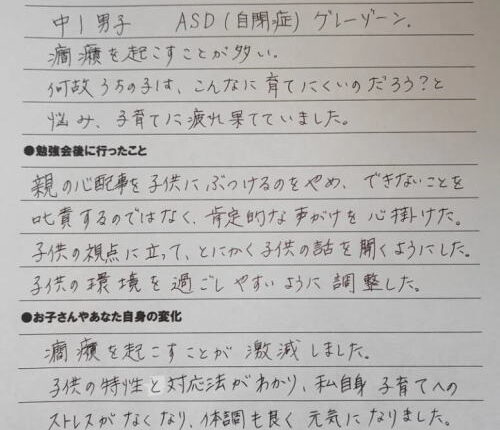 中1男子 ASD(自閉症)グレーゾーン.
癇癪を起こすことが多い.
何故うちの子は、こんなに育てにくいのだろう?と
悩み、子育てに疲れ果てていました。
●勉強会後に行ったこと
親の心配事を子供にぶつけるのをやめ、できないことを
叱責するのではなく、肯定的な声がけを心掛けた。
子供の視点に立って、とにかく子供の話を聞くようにした。
子供の環境を過ごしやすいように調整した。
●お子さんやあなた自身の変化
癇癪を起こすことが激減しました。
子供の特性と対応法がわかり、私自身子育てへの
ストレスがなくなり、体調も良く元気になりました。